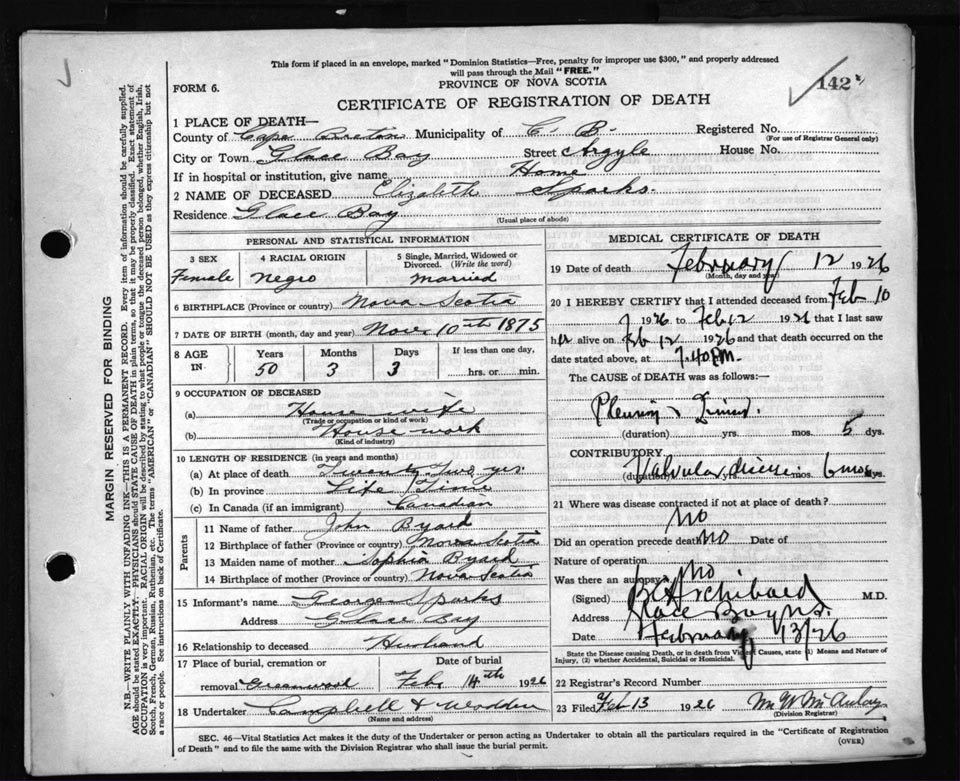 This form if placed in an envelope, marked "Dominion Statistics—Free, penalty for improper use $300," and properly addressed
will pass through the Mail "FREE."
142
FORM 6.
PROVINCE OF NOVA SCOTIA
CERTIFICATE OF REGISTRATION OF DEATH
1 PLACE OF DEATH—
County of Cape Breton Municipality of C. B. Registered No.
(For use of Registrar General only)
City or Town Glace Bay Street Argyle House No.
If in hospital or institution, give name Home
2 NAME OF DECEASED Elizabeth Sparks.
Residence Glace Bay
(Usual place of abode)
PERSONAL AND STATISTICAL INFORMATION
3 SEX 4 RACIAL ORIGIN 5 Single, Married, Widowed or
Divorced. (Write the word)
Female Negro married
6 BIRTHPLACE (Province or country) Nova Scotia
7 DATE OF BIRTH (month, day and year) Nov. 10th 1875
8 AGE IN Years Months Days If less than one day,
50 3 3 hrs. or min.
9 OCCUPATION OF DECEASED
(a) House wife
(Trade or occupation or kind of work)
(b) House work
(Kind of industry)
10 LENGTH OF RESIDENCE (in years and months)
(a) At place of death Twenty Two yrs
(b) In province Life Time
(c) In Canada (if an immigrant) Canadian
Parents
11 Name of father John Byard
12 Birthplace of father (Province or country) Nova Scotia
13 Maiden name of mother Sophia Byard
14 Birthplace of mother (Province or country) Nova Scotia
15 Informant's name George Sparks
Address Glace Bay
16 Relationship to deceased Husband
17 Place of burial, cremation or Date of burial
removal Greenwood Feb. 14th 1926
18 Undertaker Campbell &
(Name and address)
MEDICAL CERTIFICATE OF DEATH
19 Date of death February 12 1926
(Month, day and year)
20 I HEREBY CERTIFY that I attended deceased from Feb 10
1926 to Feb 12 1926 that I last saw
her alive on Feb 12 1926 and that death occurred on the
date stated above, at 7.40 P.M.
The CAUSE OF DEATH was as follows:—
(duration) yrs. mos. 5 dys.
CONTRIBUTORY
Valvular disease. 6 mos
(duration) dys.
21 Where was disease contracted if not at place of death?
No
Did an operation precede death No Date of
Nature of operation
Was there an autopsy No
(Signed) Archibald M.D.
Address Glace Bay N.S.
Date February 13/26
State the Disease causing Death, or in death from Violent Causes, state (1) Means and Nature of
Injury, (2) whether Accidental, Suicidal or Homicidal.
22 Registrar's Record Number
23 Filed Feb 13 1926 McAulay
(Division Registrar)
SEC. 46—Vital Statistics Act makes it the duty of the Undertaker or person acting as Undertaker to obtain all the particulars required in the "Certificate of Registration
of Death" and to file the same with the Division Registrar who shall issue the burial permit.
(OVER)
MARGIN RESERVED FOR BINDING
N.B.—WRITE PLAINLY WITH UNFADING INK—THIS IS A PERMANENT RECORD. Every item of information should be carefully supplied.
AGE should be stated EXACTLY. PHYSICIANS should STATE CAUSE OF DEATH in plain terms, so that it may be properly classified. Exact statement of
OCCUPATION is very important. RACIAL ORIGIN will be described by stating to what people or tongue the deceased person belonged, whether English, Irish,
Scotch, French, German, Russian, Ruthenian, etc. The terms "AMERICAN" or "CANADIAN" SHOULD NOT BE USED as they express citizenship but not
a race or people. See instructions on back of Certificate.